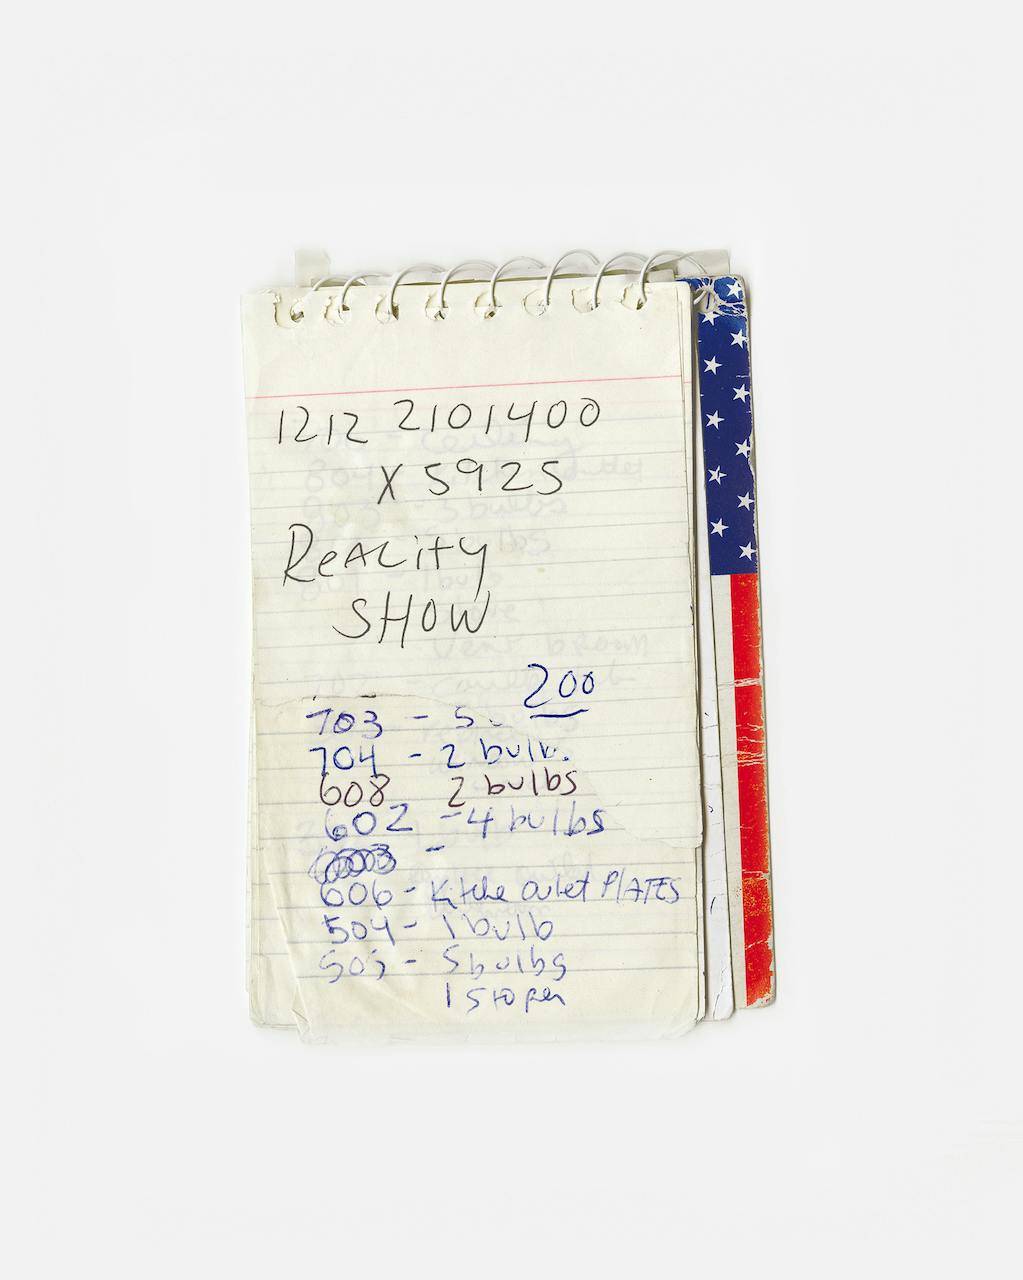 1212 2101400
X 5925
ReALity
SHOW
200
703 - 5
704 - 2 bulb.
608 2 bulbs
602 - 4 bulbs
606 - Kitche outet PlATES
504 - 1 bulb
505 - 5 bulbs
1 Stoper